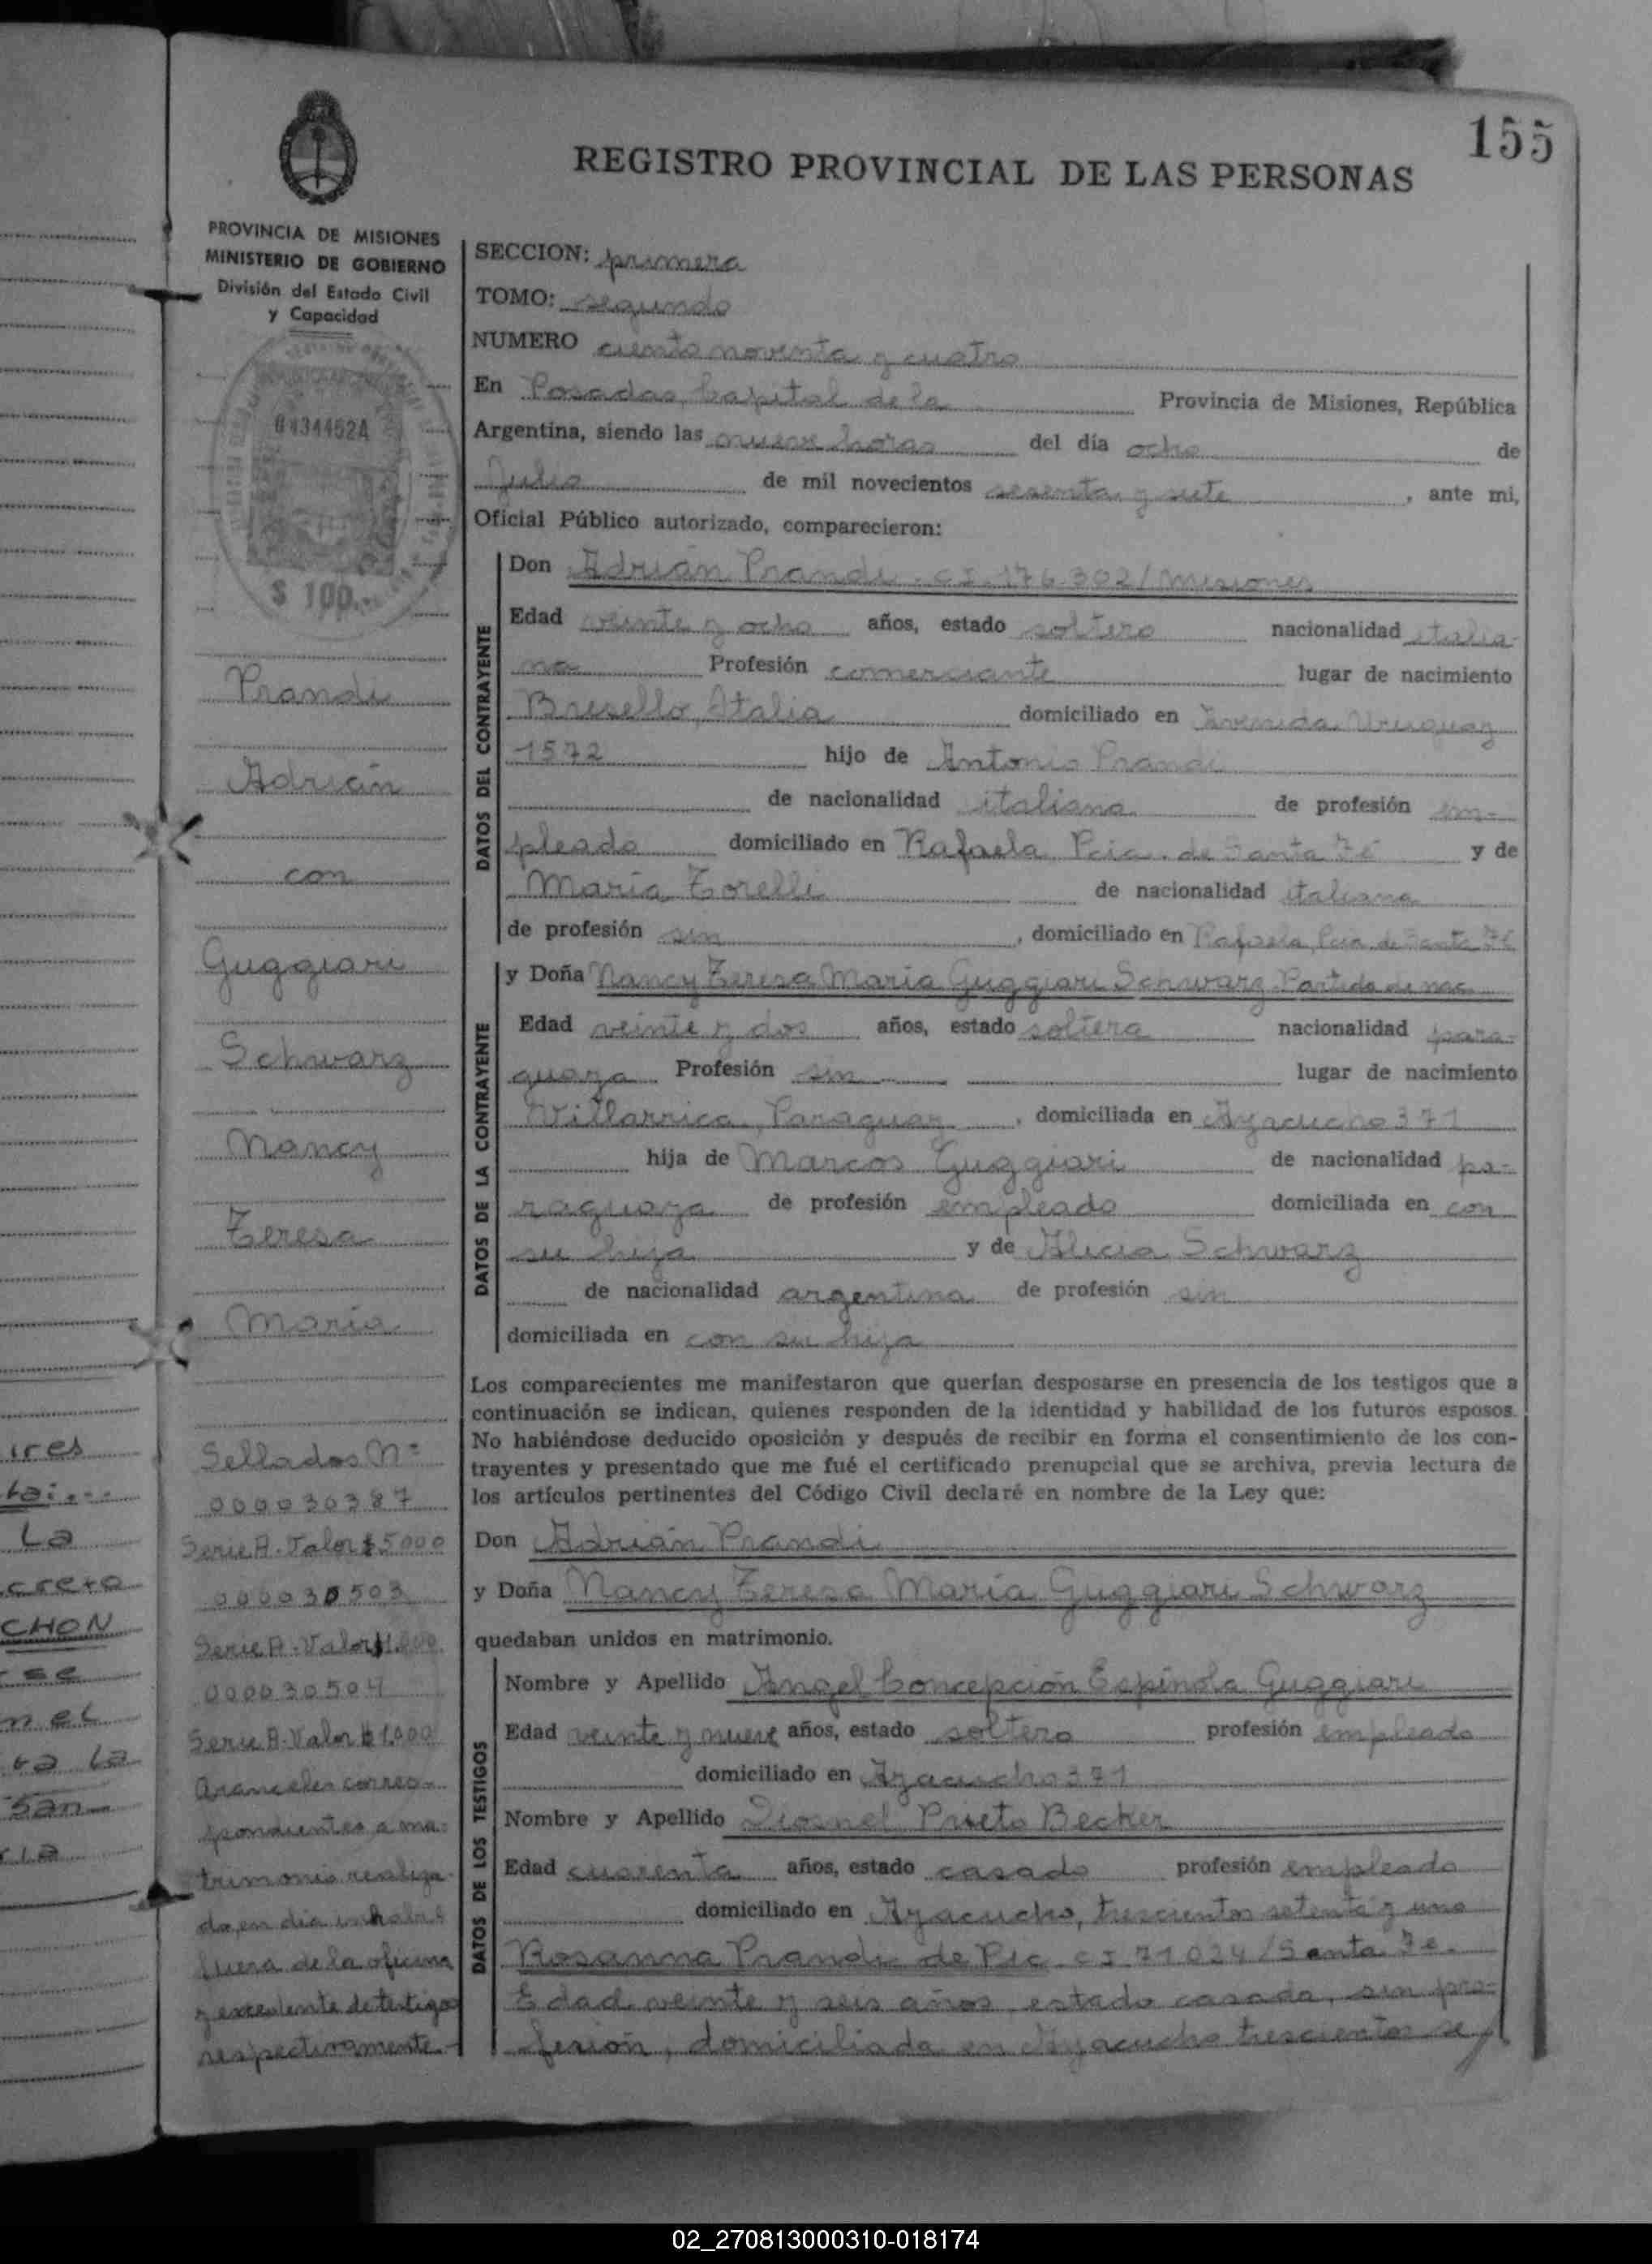 155
REGISTRO PROVINCIAL DE LAS PERSONAS
PROVINCIA DE MISIONES
MINISTERIO DE GOBIERNO
División del Estado Civil
y Capacidad
$ 100.-
Prandi
Adrián
con
Guggiari
Schwarz
Nancy
Teresa
María
Sellados Nº
000030387
Serie A. Valor $ 5000
000030503
Serie A. Valor $ 1.000
000030504
Serie A. Valor $ 1.000
Aranceles corres-
pondientes a ma-
trimonio realiza-
do, en dia inhabil
fuera de la oficina
y excedente de testigos
respectivamente.-
SECCION: primera
TOMO: segundo
NUMERO ciento noventa y cuatro
En Posadas, Capital de la Provincia de Misiones, República
Argentina, siendo las nueve horas del día ocho de
Julio de mil novecientos sesenta y siete, ante mi,
Oficial Público autorizado, comparecieron:
DATOS DEL CONTRAYENTE
Don Adrián Prandi - C.I. 176.302/Misiones
Edad veinte y ocho años, estado soltero nacionalidad italia-
na Profesión comerciante lugar de nacimiento
Bresello, Italia domiciliado en Avenida Uruguay
1572 hijo de Antonio Prandi
de nacionalidad italiana de profesión em-
pleado domiciliado en Rafaela Pcia. de Santa Fé y de
María Torelli de nacionalidad italiana
de profesión sin, domiciliado en Rafaela, Pcia de Santa Fé
DATOS DE LA CONTRAYENTE
y Doña Nancy Teresa María Guggiari Schwarz. Partida de nac.
Edad veinte y dos años, estado soltera nacionalidad para-
guaya Profesión sin lugar de nacimiento
Villarrica, Paraguay, domiciliada en Ayacucho 371
hija de Marcos Guggiari de nacionalidad pa-
raguaya de profesión empleado domiciliada en con
su hija y de Alicia Schwarz
de nacionalidad argentina de profesión sin
domiciliada en con su hija
Los comparecientes me manifestaron que querían desposarse en presencia de los testigos que a
continuación se indican, quienes responden de la identidad y habilidad de los futuros esposos.
No habiéndose deducido oposición y después de recibir en forma el consentimiento de los con-
trayentes y presentado que me fué el certificado prenupcial que se archiva, previa lectura de
los artículos pertinentes del Código Civil declaré en nombre de la Ley que:
Don Adrián Prandi
y Doña Nancy Teresa María Guggiari Schwarz
quedaban unidos en matrimonio.
DATOS DE LOS TESTIGOS
Nombre y Apellido Angel Concepción Espínola Guggiari
Edad veinte y nueve años, estado soltero profesión empleado
domiciliado en Ayacucho 371
Nombre y Apellido Prieto Becker
Edad cuarenta años, estado casado profesión empleado
domiciliado en Ayacucho, trescientos setenta y uno
Rosanna Prandi de Pic C.I 71.024/Santa Fe.
Edad veinte y seis años, estado casada, sin pro-
fesión, domiciliada en Ayacucho trescientos se
ires
La
creto
CHON
se
nel
ta la
San
ria
02_270813000310-018174